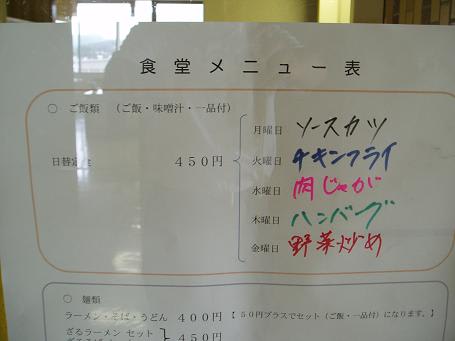 食堂メニュー表
○ ご飯類 （ご飯・味噌汁・一品付）
日替定食 450円
月曜日 ソースカツ
火曜日 チキンフライ
水曜日 肉じゃが
木曜日 ハンバーグ
金曜日 野菜炒め
○ 麺類
ラーメン・そば・うどん 400円 【50円プラスでセット（ご飯・一品付）になります。】
ざるラーメン セット
450円